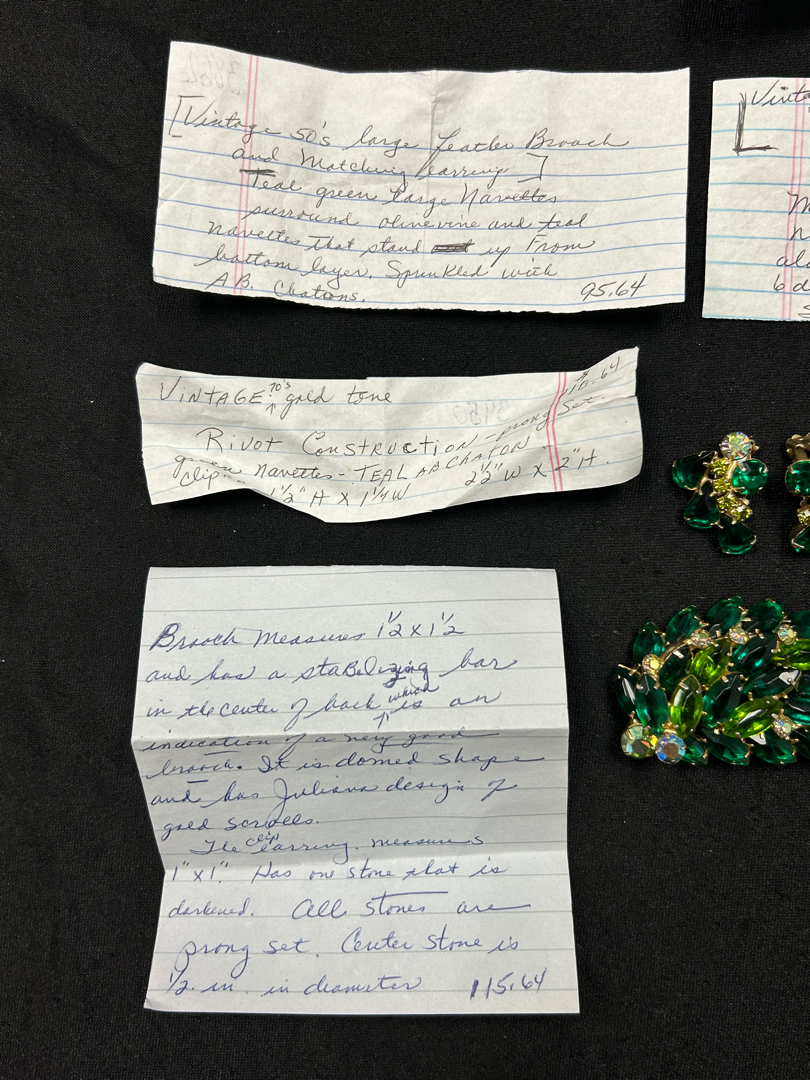 [Vintage 50's large feather Brooch
and Matching earring]
Teal green large Navettes
surround olivevine and teal
navettes that stand up From
bottom layer. Sprinkled with
A.B. Chatons. 95.64
VINTAGE 70's gold tone
RIVOT CONSTRUCTION - prong set.
green navettes - TEAL AB CHATON
clip - 1 1/2" H X 1 1/4 W 2 1/2" W X 2" H.
Brooch Measures 1 1/2 x 1 1/2
and has a stabelizing bar
in the center of back which is an
indication of a very good
brooch. It is domed shape
and has Juliana design of
gold scrolls.
The clip earring measures
1" x 1". Has one stone that is
darkened. All stones are
prong set. Center stone is
1/2 in. in diameter 115.64
[Vinta
6 d